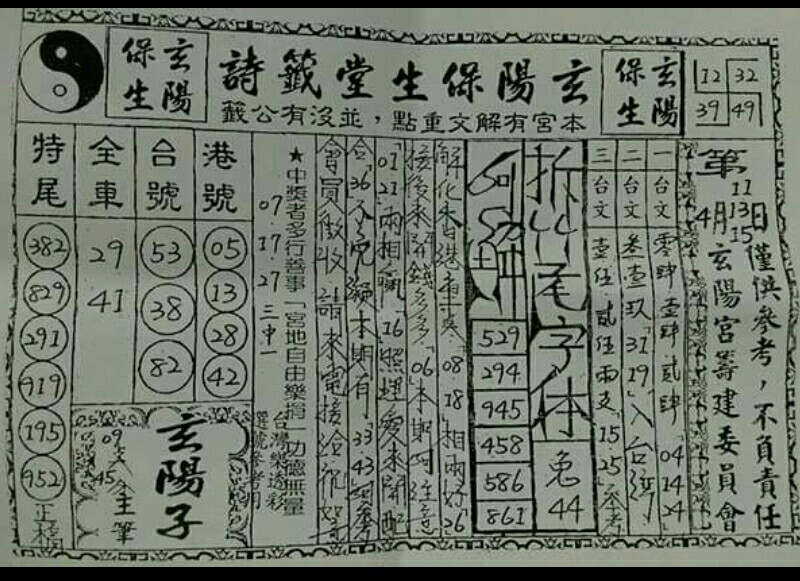 玄陽保生
玄陽保生堂籤詩
本宮有解文重點，並沒有公籤
玄陽保生
12 32
39 49
第 11 13 15 日僅供參考，不負責任
4月玄陽宮籌建委員會
一台文 零肆壹肆貳肆「04 14 24」
二台文 叁壹玖「31 19」入台灣
三台文 壹伍貳伍兩支「15 25」參考
拆竹尾字体
兔
44
529
294
945
458
586
861
「08 18」相兩好「26」
「06」本期
「01 21」兩相「16」照理愛來鬥配
「36」本期有「33 43」
會員徵收 請來電接洽
★中獎者多行善事「宮地自由樂捐」功德無量
07 17 27 三中一
台灣樂透彩
選號參考用
港號
05
13
28
42
台號
53
38
82
全車
29
41
特尾
382
829
291
919
195
952
玄陽子
主筆
09
45